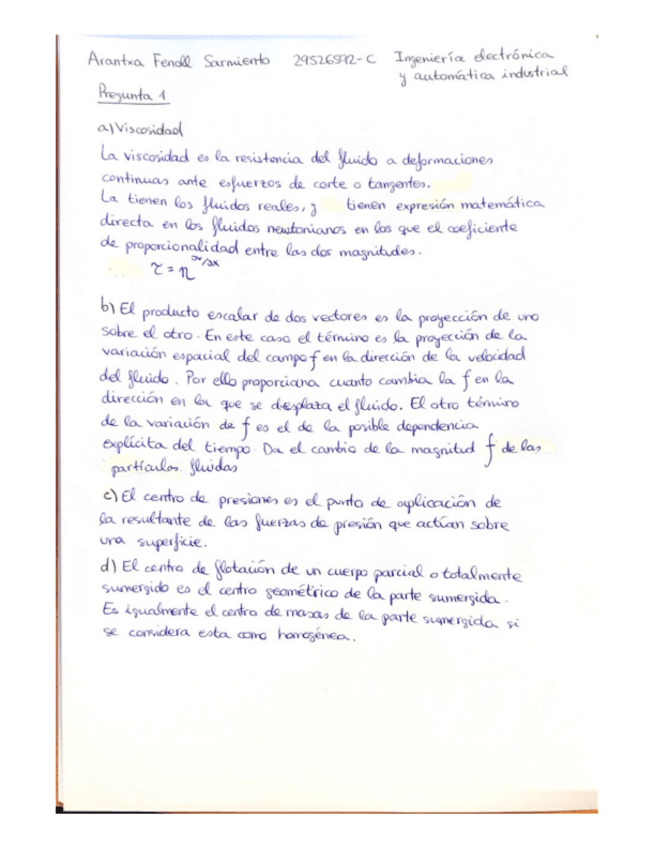 Arantxa Fenoll Sarmiento 29526592-C Ingeniería electrónica
y automática industrial
Pregunta 1
a) Viscosidad
La viscosidad es la resistencia del fluido a deformaciones
continuas ante esfuerzos de corte o tangentes.
La tienen los fluidos reales, y tienen expresión matemática
directa en los fluidos newtonianos en los que el coeficiente
de proporcionalidad entre las dos magnitudes.
τ = η ∂v/∂x
b) El producto escalar de dos vectores es la proyección de uno
sobre el otro. En este caso el término es la proyección de la
variación espacial del campo f en la dirección de la velocidad
del fluido. Por ello proporciana cuanto cambia la f en la
dirección en la que se desplaza el fluido. El otro término
de la variación de f es el de la posible dependencia
explícita del tiempo. Da el cambio de la magnitud f de las
partículas fluidas
c) El centro de presiones es el punto de aplicación de
la resultante de las fuerzas de presión que actúan sobre
una superficie.
d) El centro de flotación de un cuerpo parcial o totalmente
sumergido es el centro geométrico de la parte sumergida.
Es igualmente el centro de masas de la parte sumergida si
se considera esta como homogénea.